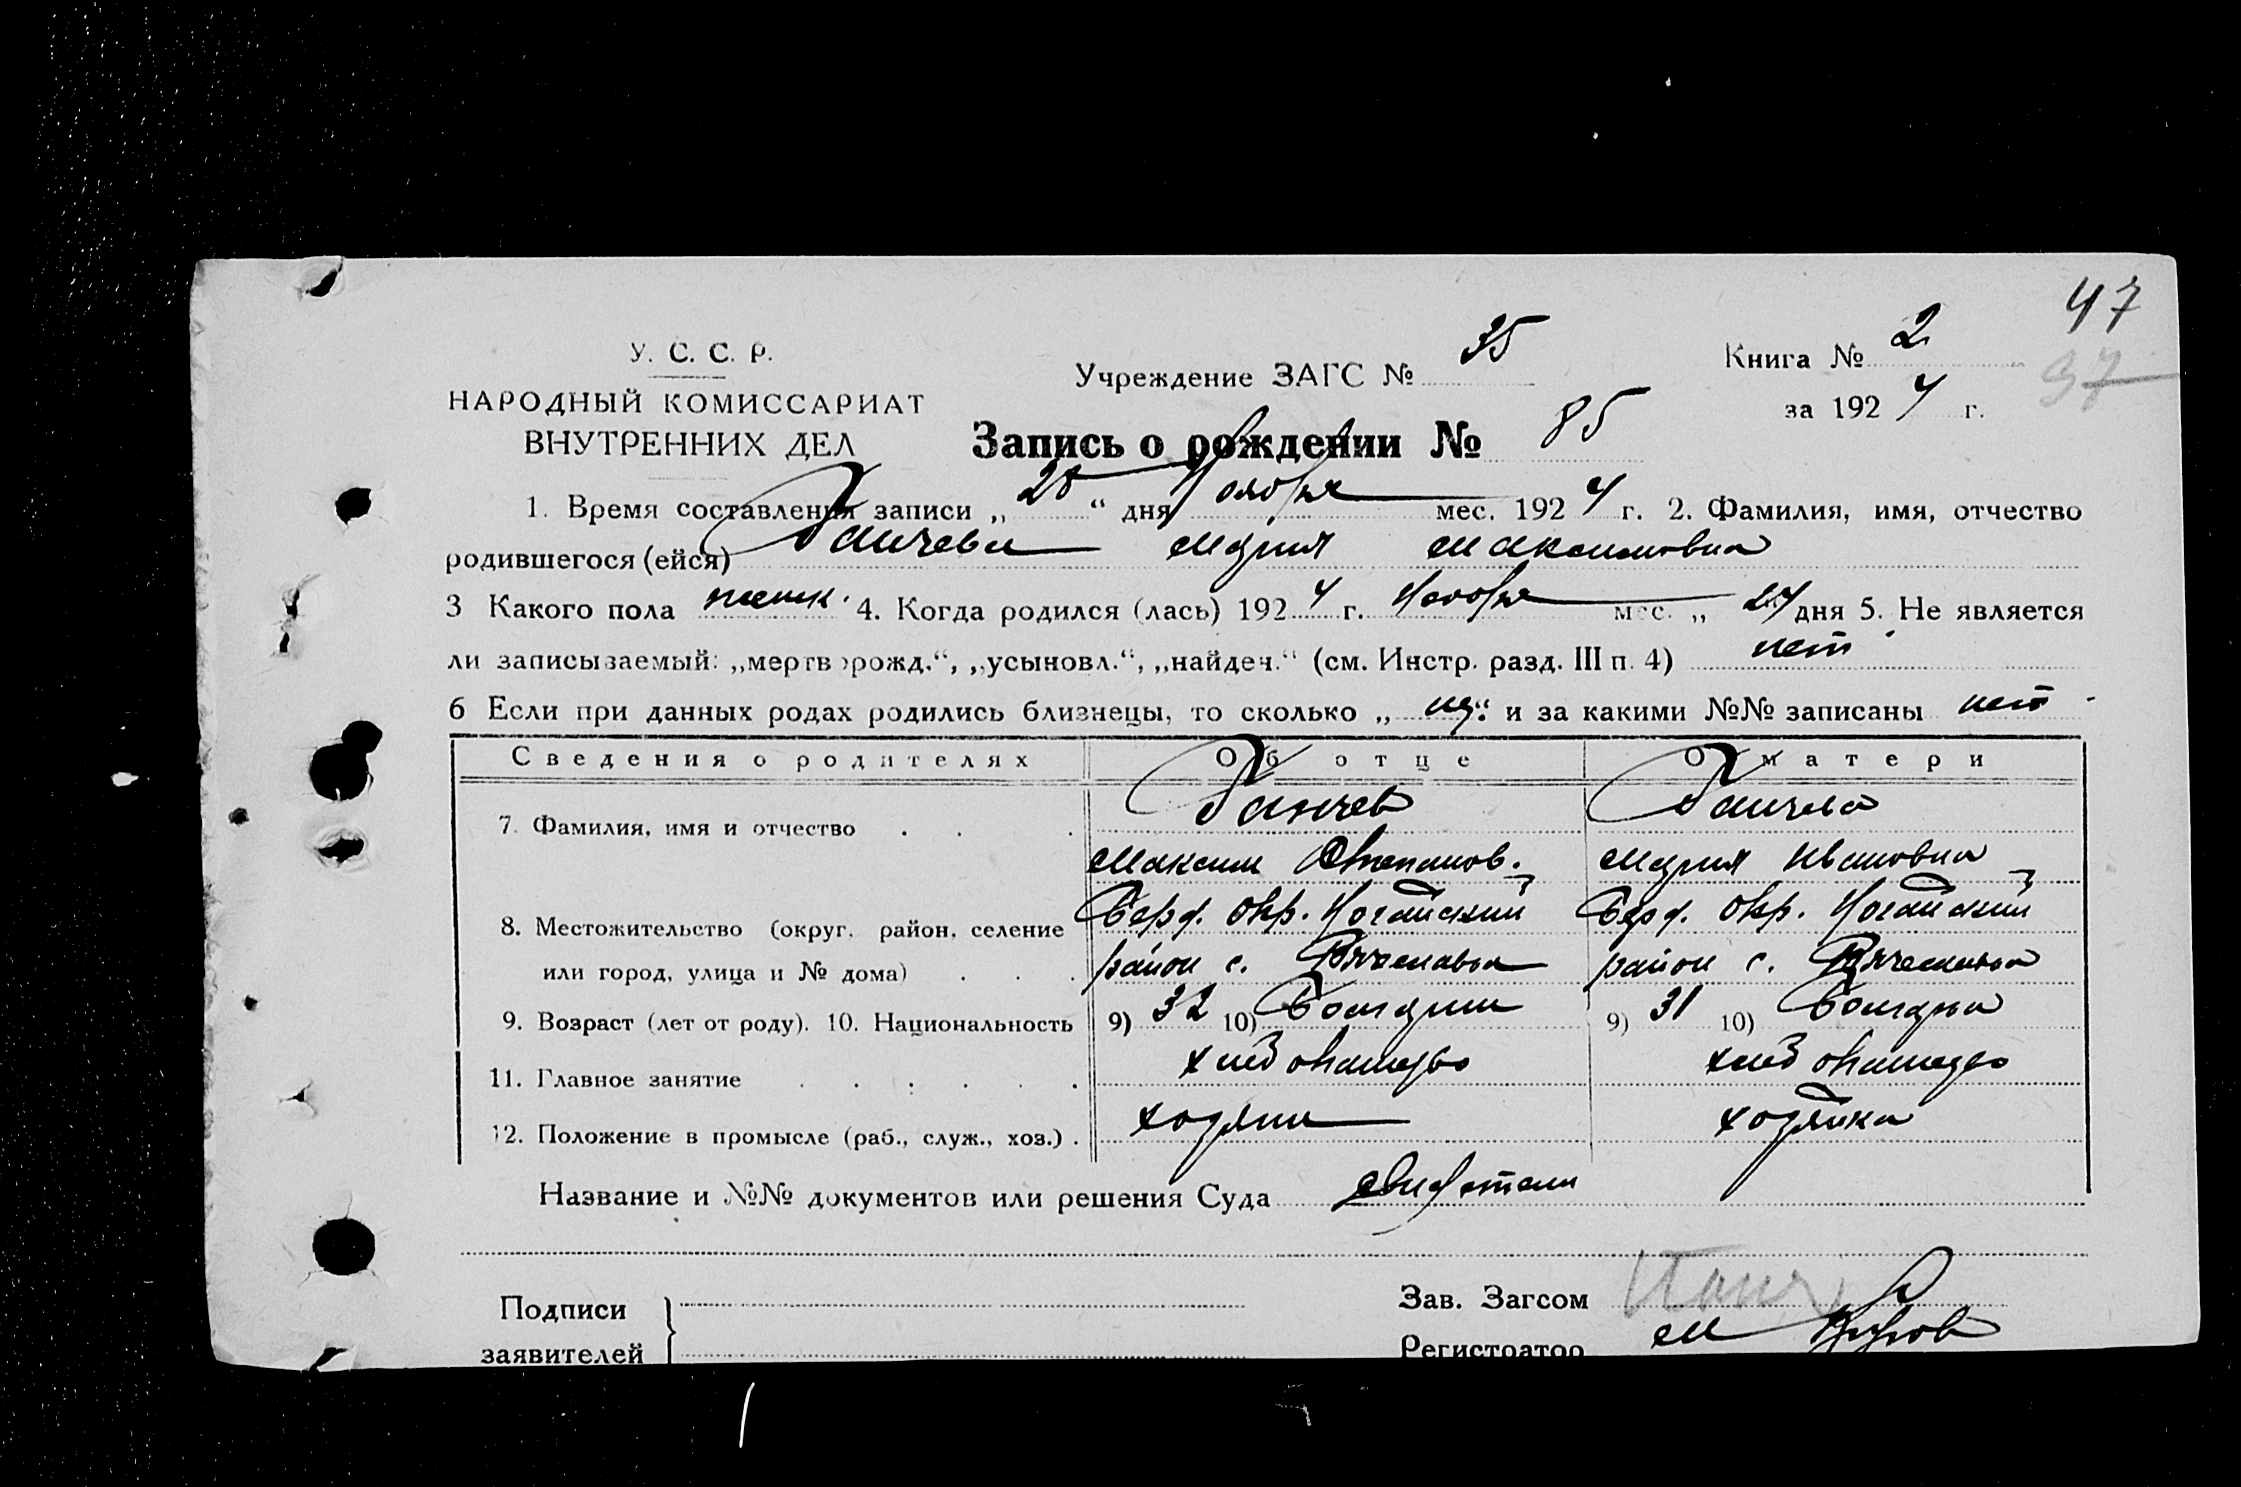 47
У. С. С. Р.
Учреждение ЗАГС № 35
Книга № 2
37
НАРОДНЫЙ КОМИССАРИАТ
за 1924 г.
ВНУТРЕННИХ ДЕЛ
Запись о рождении № 85
1. Время составления записи „28“ дня Ноября мес. 1924 г. 2. Фамилия, имя, отчество
родившегося (ейся) Ганчева Мария Максимовна
3 Какого пола женск. 4. Когда родился (лась) 1924 г. Ноября мес. „24“ дня 5. Не является
ли записываемый: „мертворожд.“, „усыновл.“, „найден.“ (см. Инстр. разд. III п. 4) нет
6 Если при данных родах родились близнецы, то сколько „ “ и за какими №№ записаны нет
Сведения о родителях Об отце О матери
7. Фамилия, имя и отчество Ганчев Ганчева
Максим Степанов. Мария Ивановна
8. Местожительство (округ, район, селение Берд. Окр. Ногайский Берд. Окр. Ногайский
или город, улица и № дома) район с. Вячеславка район с. Вячеславка
9. Возраст (лет от роду). 10. Национальность 9) 32 10) Болгарин 9) 31 10) Болгарка
11. Главное занятие хлебопашество хлебопашество
12. Положение в промысле (раб., служ., хоз.) хозяин хозяйка
Название и №№ документов или решения Суда
Подписи
заявителей
Зав. Загсом
Регистратор М